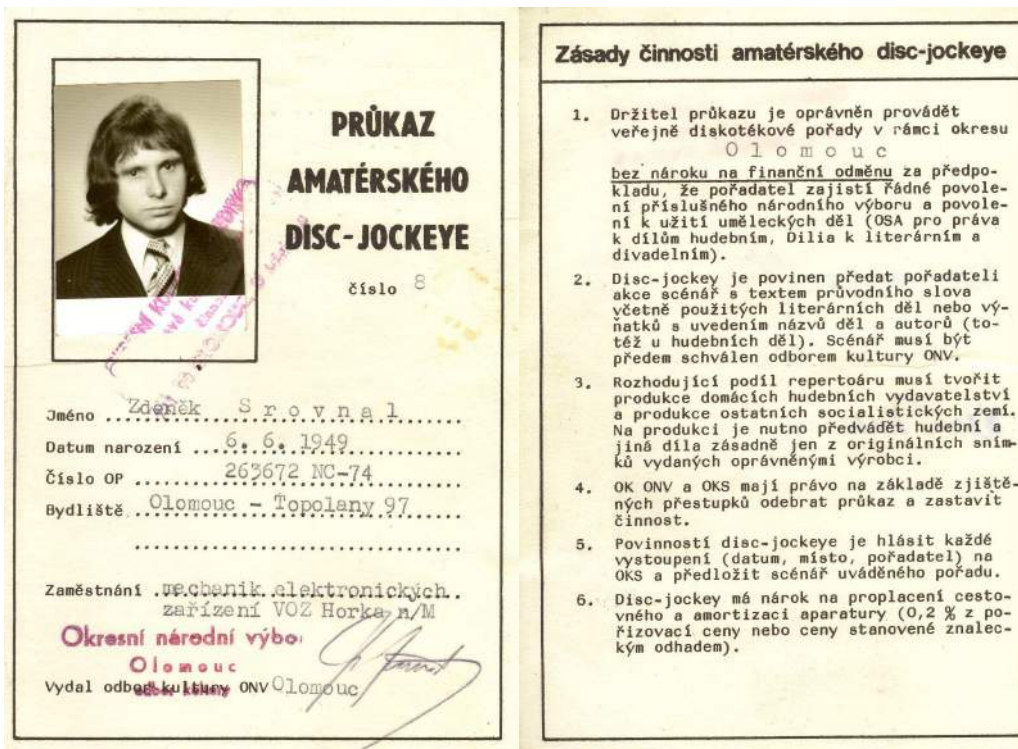 PRŮKAZ
AMATÉRSKÉHO
DISC-JOCKEYE
číslo 8
Jméno Zdeněk Srovnal
Datum narození 6. 6. 1949
Číslo OP 263672 NC-74
Bydliště Olomouc - Topolany 97
Zaměstnání mechanik elektronických
zařízení VOZ Horka n/M
Okresní národní výbo
Olomouc
odbor kultury
Vydal odbor kultury ONV Olomouc
Zásady činnosti amatérského disc-jockeye
1. Držitel průkazu je oprávněn provádět
veřejně diskotékové pořady v rámci okresu
Olomouc
bez nároku na finanční odměnu za předpo-
kladu, že pořadatel zajistí řádné povole-
ní příslušného národního výboru a povole-
ní k užití uměleckých děl (OSA pro práva
k dílům hudebním, Dilia k literárním a
divadelním).
2. Disc-jockey je povinen předat pořadateli
akce scénář s textem průvodního slova
včetně použitých literárních děl nebo vý-
ňatků s uvedením názvů děl a autorů (to-
též u hudebních děl). Scénář musí být
předem schválen odborem kultury ONV.
3. Rozhodující podíl repertoáru musí tvořit
produkce domácích hudebních vydavatelství
a produkce ostatních socialistických zemí.
Na produkci je nutno předvádět hudební a
jiná díla zásadně jen z originálních sním-
ků vydaných oprávněnými výrobci.
4. OK ONV a OKS mají právo na základě zjiště-
ných přestupků odebrat průkaz a zastavit
činnost.
5. Povinností disc-jockeye je hlásit každé
vystoupení (datum, místo, pořadatel) na
OKS a předložit scénář uváděného pořadu.
6. Disc-jockey má nárok na proplacení cesto-
vného a amortizaci aparatury (0,2 % z po-
řizovací ceny nebo ceny stanovené znalec-
kým odhadem).